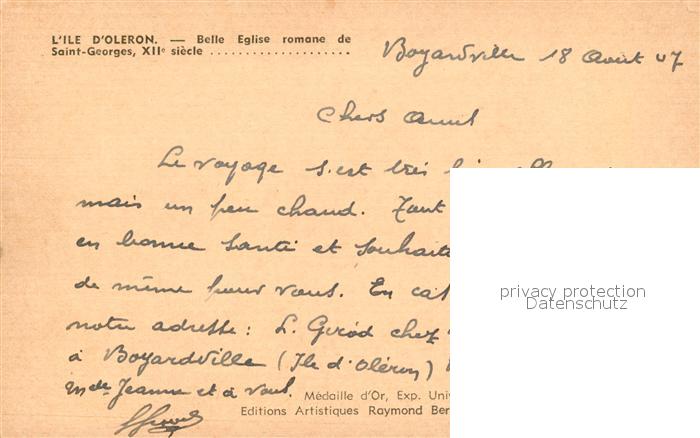 L'ILE D'OLERON. — Belle Eglise romane de
Saint-Georges, XIIe siècle ....................
Boyardville 18 Août 47
Chers Amis
Le voyage s'est très
mais un peu chaud. Tout
en bonne santé et souhaite
de même pour vous. En cas
notre adresse : L. Girod chez
à Boyardville (Ile d'Oléron)
Mde Jeanne et à vous.
Médaille d'Or, Exp. Univ
Editions Artistiques Raymond Ber
privacy protection
Datenschutz